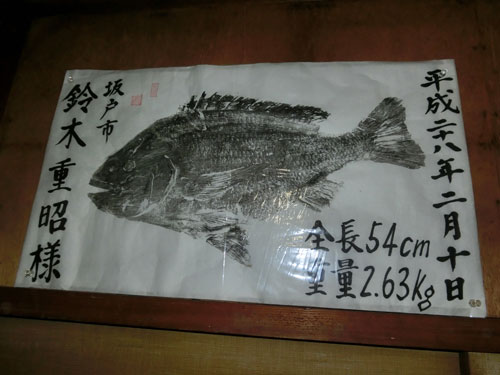 平成二十八年二月十日
全長54cm
重量2.63Kg
坂戸市
鈴木重昭様